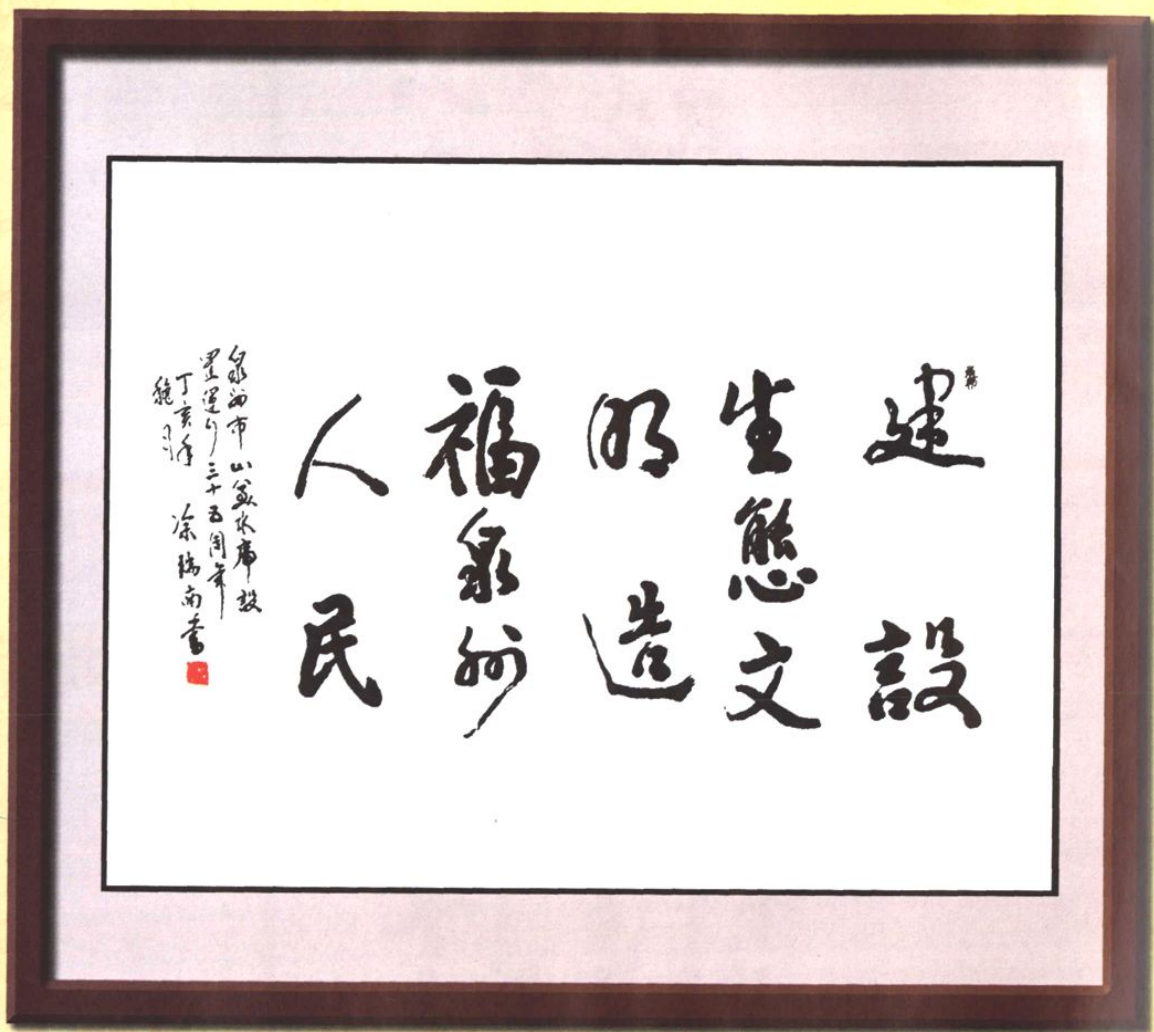 建設
生態文
明造
福泉州
人民
泉州市山美水庫設
置運行三十五周年
丁亥年 涂瑞南書